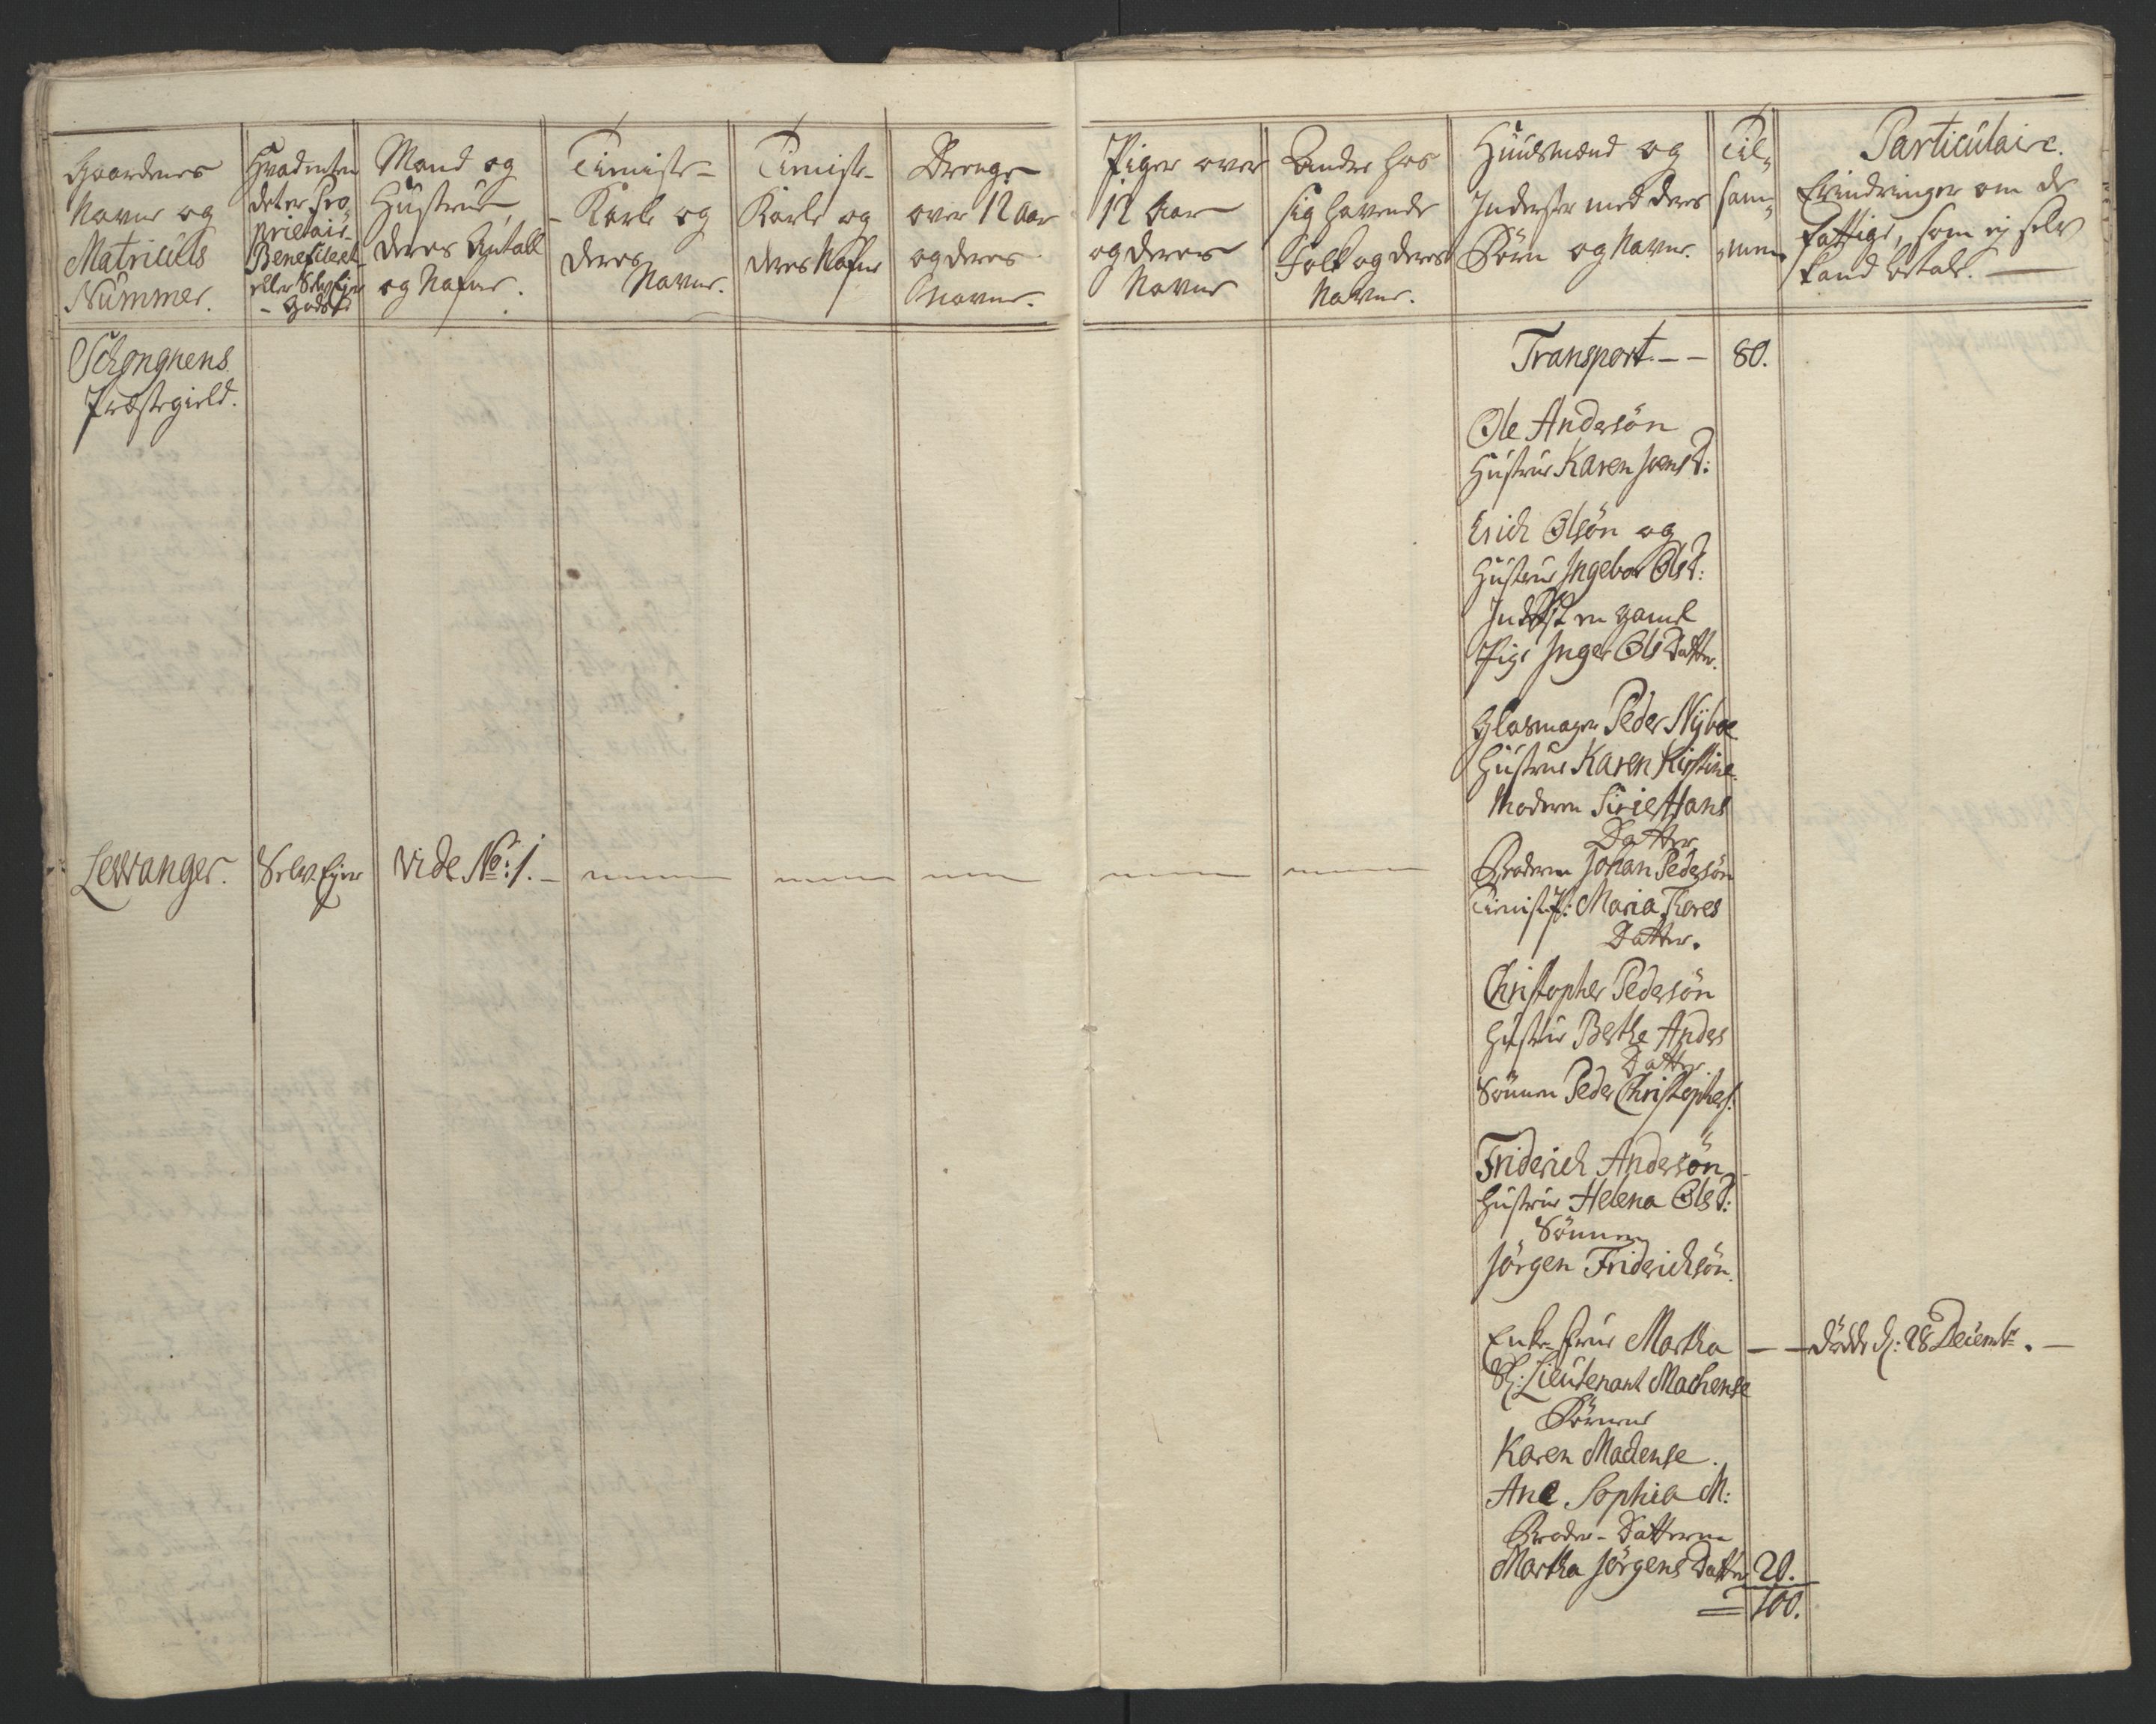 Gaardenes
Navne og
Matriculs
Nummer.
Hvad enten
det er Pro
prietair
Beneficeret
eller Selv Ejer
Gods
Mand og
Hustrue,
deres Antall
og Nafne.
Tieniste-
Karle og
deres
Navne.
Tieniste-
Karle og
deres Nafne
Drenge
over 12 Aar
og deres
Navne.
Piger over
12 Aar
og deres
Navne
Andre hos
sig havende
Folk og deres
Navne.
Huusmænd og
Inderster med deres
Börn og Navne.
Til„
sam„
men
Particulaire
Erindringer om de
Fattige, som ej selv
kand betale.
Schongnens
Præstegield.
Transport. — — 80.
Ole Andersön
Hustrue Karen JoensD:
Erich Olsön og
Hustrue Ingebor OlsD:
Inderst en gamel
Pige Inger Ols Datter.
Glasmager Peder Nyboe
Hustrue Karen Kirstine
Moderen Sirie Hans
Datter
Levvanger. Selv Ejer Vide No: 1.
Broderen Johan Pedersön
Tieniste P: Maria Thores
Datter.
Christopher Pedersön
Hustrue Berthe Anders
Datter.
Sönnen Peder Christophers:
Friderich Andersön
Hustrue Helena OlsD:
Sönnen
Jörgen Friderichsön.
Enke-Frue Martha — — döde d: 28 Decembr. —
Sl: Lieutenant Machense
Börnene
Karen Machense.
Ane Sophia M:
Broder-Datteren
Martha Jörgens Datter 20.
100.